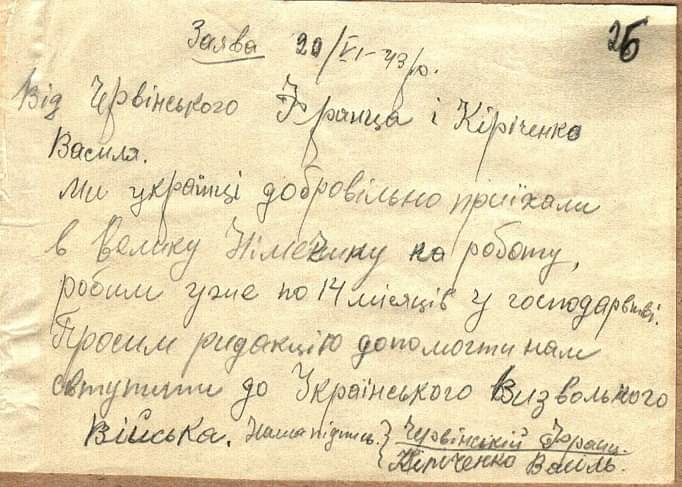 Заява 20/VI-43 р.
26
Від Червінського Франца і Кіріченко
Василя.
Ми українці добровільно приїхали
в Велику Німечину на роботу,
робим уже по 14 місяців у господарстві.
Просим ридакцію допомогти нам
вступити до Українського Визвольного
Війська. Наша підпись. } Червінській Франц.
{ Кіріченко Василь.